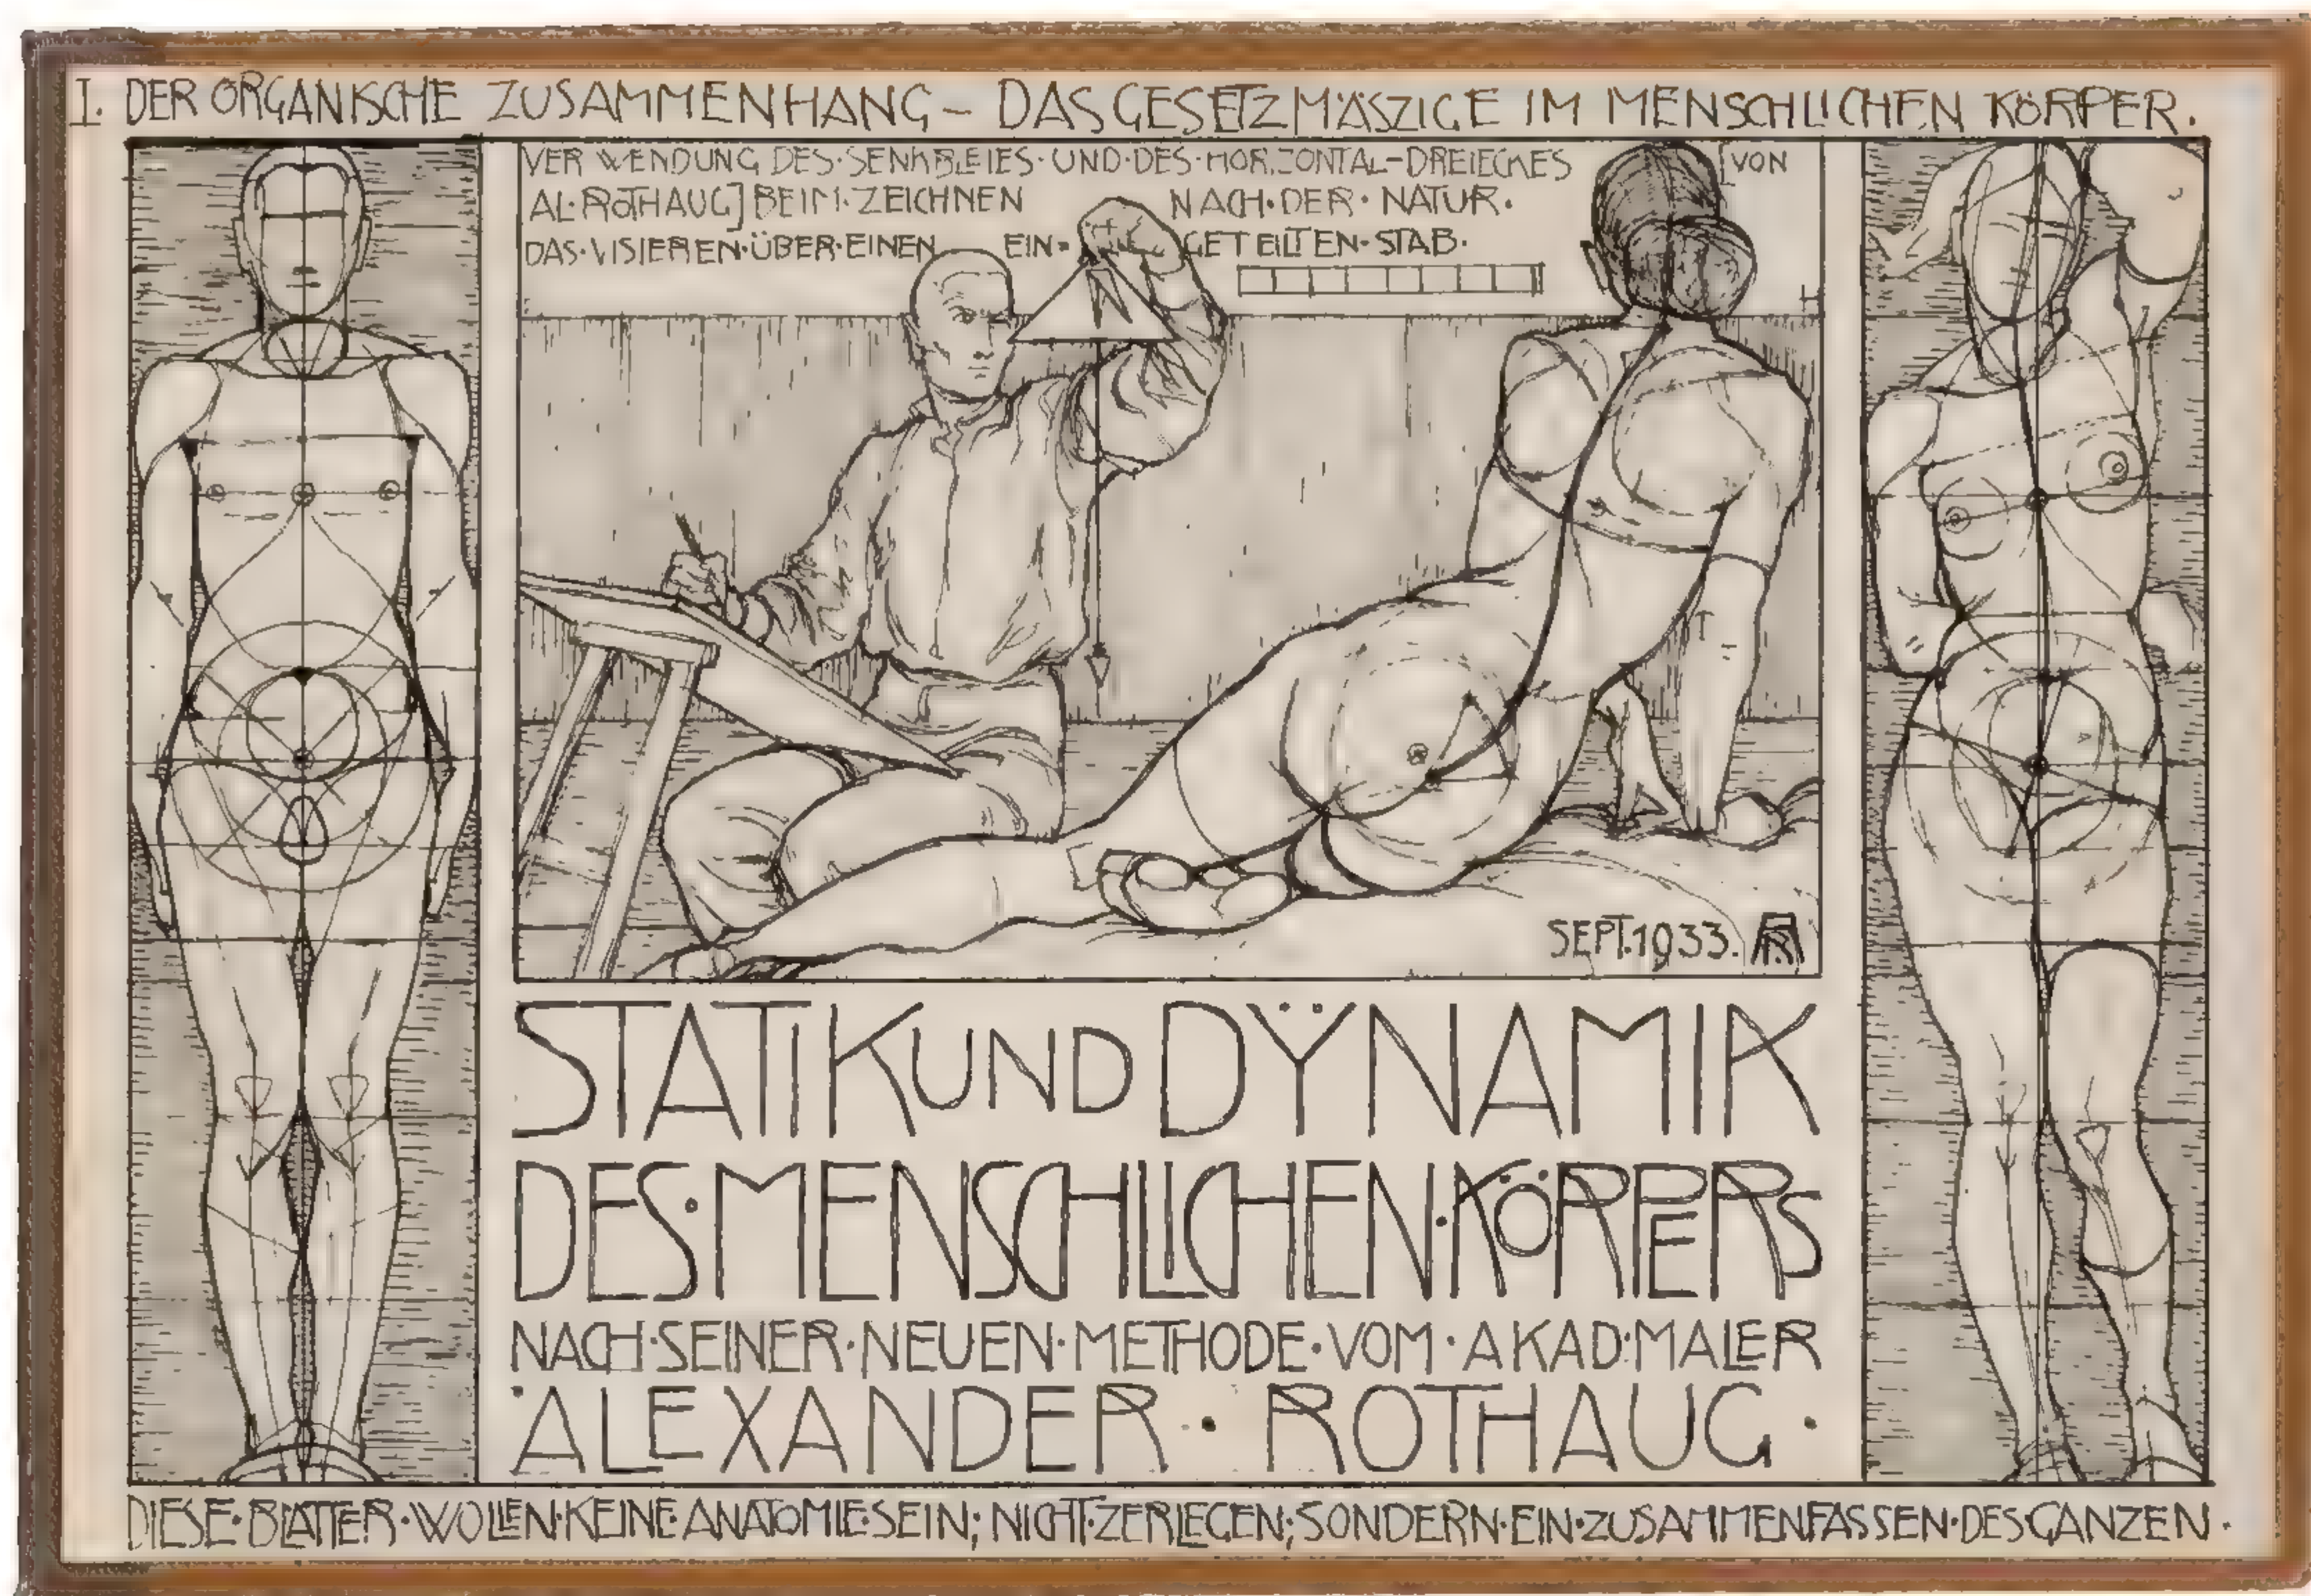 I. DER ORGANISCHE ZUSAMMENHANG – DAS GESETZMÄSZIGE IM MENSCHLICHEN KÖRPER.
VERWENDUNG DES·SENKBLEIES·UND·DES·HORIZONTAL-DREIECKES [VON
AL·ROTHAUG] BEIM·ZEICHNEN NACH·DER·NATUR.
DAS·VISIEREN·ÜBER·EINEN EIN= GETEILTEN·STAB.
SEPT.1933. AR
STATIK UND DŸNAMIK
DES·MENSCHLICHEN·KÖRPERS
NACH·SEINER·NEUEN·METHODE·VOM·AKAD·MALER
·ALEXANDER·ROTHAUG·
DIESE·BLÄTTER·WOLLEN·KEINE·ANATOMIE·SEIN; NICHT·ZERLEGEN; SONDERN·EIN·ZUSAMMENFASSEN·DES·GANZEN·